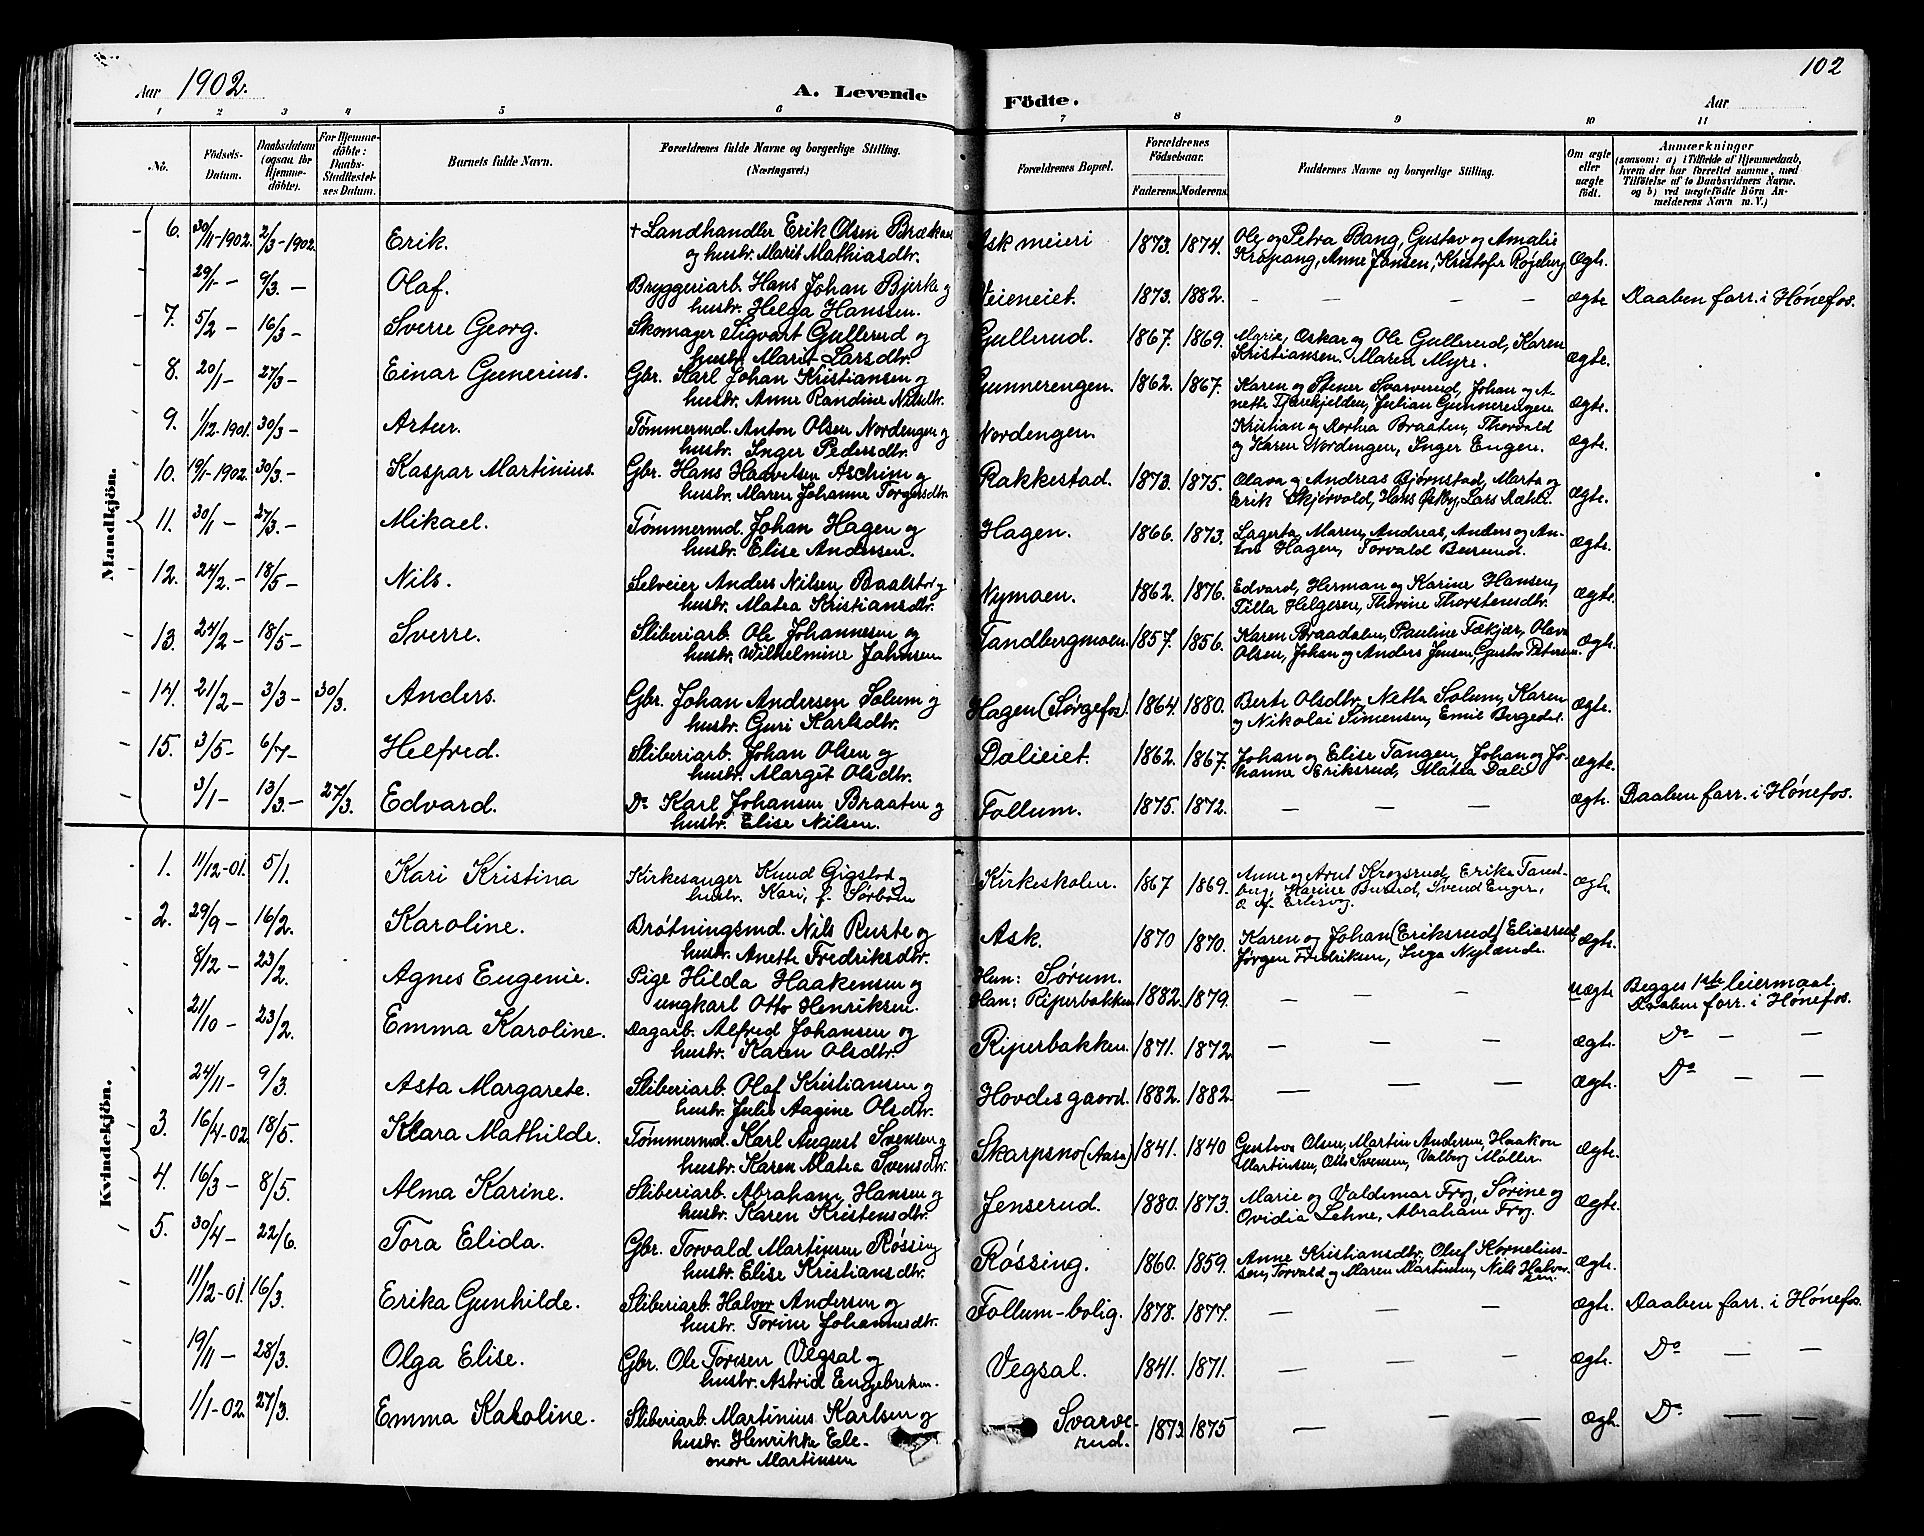 102
Aar 1902.
A. Levende
Fødte.
Aar
1 2 3 4 5 6 7 8 9 10 11
No.
Fødsels-Datum.
Daabsdatum (ogsaa for Hjemmedøbte).
For Hjemmedøbte: Daabs-Stadfæstelses Datum.
Barnets fulde Navn.
Forældrenes fulde Navne og borgerlige Stilling. (Næringsvei.)
Forældrenes Bopæl.
Forældrenes Fødselsaar.
Faderens. Moderens.
Faddernes Navne og borgerlige Stilling.
Om ægte eller uægte født.
Anmærkninger
(saasom: a) i Tilfælde af Hjemmedaab, hvem der har forrettet samme, med Tilføielse af to Daabsvidners Navne, og b) ved uægtefødte Børn Anmelderens Navn m. V.)
Mandkjön.
6. 30/1-1902. 2/3-1902. Erik. + Landhandler Erik Olsen Bræk
og hustr. Marit Mathiasdtr. Ask meieri 1873. 1874. Ole og Petra Bang, Gustav og Amalie
Kropang, Anne Jansen, Kristofer Røgeberg ægte.
29/1 - 9/3. - Olaf. Bryggeriarb. Hans Johan Bjerke og
hustr. Helga Hansen. Veieneiet. 1873. 1882. - - - ægte Daaben forr. i Hønefos.
7. 5/2 - 16/3 - Sverre Georg. Skomager Sigvart Gullerud og
hustr. Marit Larsdtr. Gullerud. 1867. 1869. Marie, Oskar og Ole Gullerud, Karen
Kristiansen. Maren Myre. ægte.
8. 20/1 - 27/3 - Einar Gunerius. Gbr. Karl Johan Kristiansen og
hustr. Anne Randine Nilsdtr. Gunnerengen. 1862. 1867. Karen og Stener Svarverud, Johan og A-
nette Tjærekjelden, Julian Gunnerengen ægte.
9. 1/12-1901. 30/3 - Artur. Tømmermd. Anton Olsen Nordengen og
hustr. Inger Pedersdtr. Nordengen. Kristian og Marthea Braaten, Thorvald
og Karen Nordengen, Inger Engen. ægte.
10. 19/1-1902. 30/3 - Kaspar Martinius. Gbr. Hans Haavelsen Aschim og
hustr. Maren Johanne Torgersdtr. Rakkestad. 1873. 1875. Olava og Andreas Bjørnstad, Marta og
Erik Skjørvold, Hans Østby, Lars Sætre. ægte.
11. 30/1 - 27/3 - Mikael. Tømmermd. Johan Hagen og
hustr. Elise Andersen. Hagen. 1866. 1873. Lagerta, Maren, Andreas, Anders og An-
ton Hagen, Torvald Buerud. ægte.
12. 24/2. - 18/5 - Nils. Selveier Anders Nilsen Baalstad og
hustr. Matea Kristiansdtr. Nymoen. 1862. 1876. Edvard, Herman og Karine Hansen,
Tilla Helgesen, Thorine Thorstensdtr. ægte.
13. 24/2 - 18/5 - Sverre. Sliberiarb. Ole Johannesen og
hustr. Wilhelmine Johnsen. Tandbergmoen. 1857. 1856. Karen Braadalen, Pauline Fækjær, Olava
Olsen, Johan og Anders Jensen, Gustav Petersen. ægte.
14. 21/2 - 3/3 - 30/3. Anders. Gbr. Johan Andersen Solum og
hustr. Guri Karlsdtr. Hagen (Sørgefos). 1864. 1880. Berte Olsdtr. Netta Solum, Karen
og Nikolai Simensen, Emil Bergedal. ægte.
15. 3/5 - 6/7 - Helfred. Sliberiarb. Johan Olsen og
hustr. Margit Olsdtr. Dælieiet. 1862. 1867. Johan og Elise Tangen, Johan og Jo-
hanne Eriksrud, Matea Dæli ægte.
3/1 - 13/3. - 27/3. Edvard. Do Karl Johansen Braaten og
hustr. Elise Nilsen. Follum. 1875. 1872. - - - ægte. Daaben forr. i Hønefos.
Kvindekjön.
1. 11/12-01. 5/1. Kari Kristina Kirkesanger Knud Gigstad og
hustr. Kari, f. Sørbøen Kirkeskolen. 1867 1869. Anne og Arnt Krogsrud, Erik Tand-
berg, Karine Buerud, Svend Enger, ægte.
2. 29/9 - 16/2. Karoline. Brøtningsmd. Nils Ruste og
hustr. Anette Fredriksdtr. Ask. 1870 1870. Karen og Johan (Eriksrud) Eliasrud,
Jørgen Fredriksen, Inga Nylænde. ægte.
8/12 - 23/2. Agnes Eugenie. Pige Hilda Haakensen og
ungkarl Otto Henriksen. Hun: Sørum.
Han: Riperbakken 1882. 1879. - - - uægte Begges 1ste leiermaal.
Daaben forr. i Hønefos.
21/10 - 23/2. Emma Karoline. Dagarb. Alfred Johansen og
hustr. Karen Olsdtr. Riperbakken. 1871. 1872 - - - ægte. Do - -
24/11 - 9/3. Asta Margarete. Sliberiarb. Olaf Kristiansen og
hustr. Julie Aagine Olsdtr. Hovdesgaard. 1882. 1882. - - - ægte. Do - -
3. 16/4-02. 18/5. Klara Mathilde. Tømmermd. Karl August Svensen og
hustr. Karen Matea Svensdtr. Skarpsno (Aasa) 1841. 1840 Gustava Olsen, Martin Andersen, Haakon
Martinsen, Otto Svensen, Valborg Møller. ægte.
4. 16/3 - 8/5. Alma Karine. Sliberiarb. Abraham Hansen og
hustr. Karen Kristensdtr. Jenserud. 1880. 1873. Marie og Valdemar Frog, Sørine og
Ovidia Lehne, Abraham Frog. ægte.
5. 30/4 - 22/6. Tora Elida. Gbr. Torvald Martinsen Røssing
hustr. Elise Kristiansdtr. Røssing. 1860. 1859. Anne Kristiansdtr. Oluf Kornelius-
sen, Torvald og Maren Martinsen, Nils Halvor-
sen. ægte.
11/12-01. 16/3. Erika Gunhilde. Sliberiarb. Halvor Andersen og
hustr. Torine Johannesdtr. Follum-bolig. 1878. 1877. - - - ægte. Daaben forr. i Hønefos.
19/11 - 28/3. Olga Elise. Gbr. Ole Toresen Vegsal og
hustr. Astrid Engebretsen. Vegsal. 1841. 1871. - - - ægte. Do - -
1/1-02. 27/3. Emma Karoline. Sliberiarb. Martinius Karlsen og
hustr. Henrikke Ele-
onore Martinsen Svarve-
rud. 1873 1875 - - - ægte. Do - -